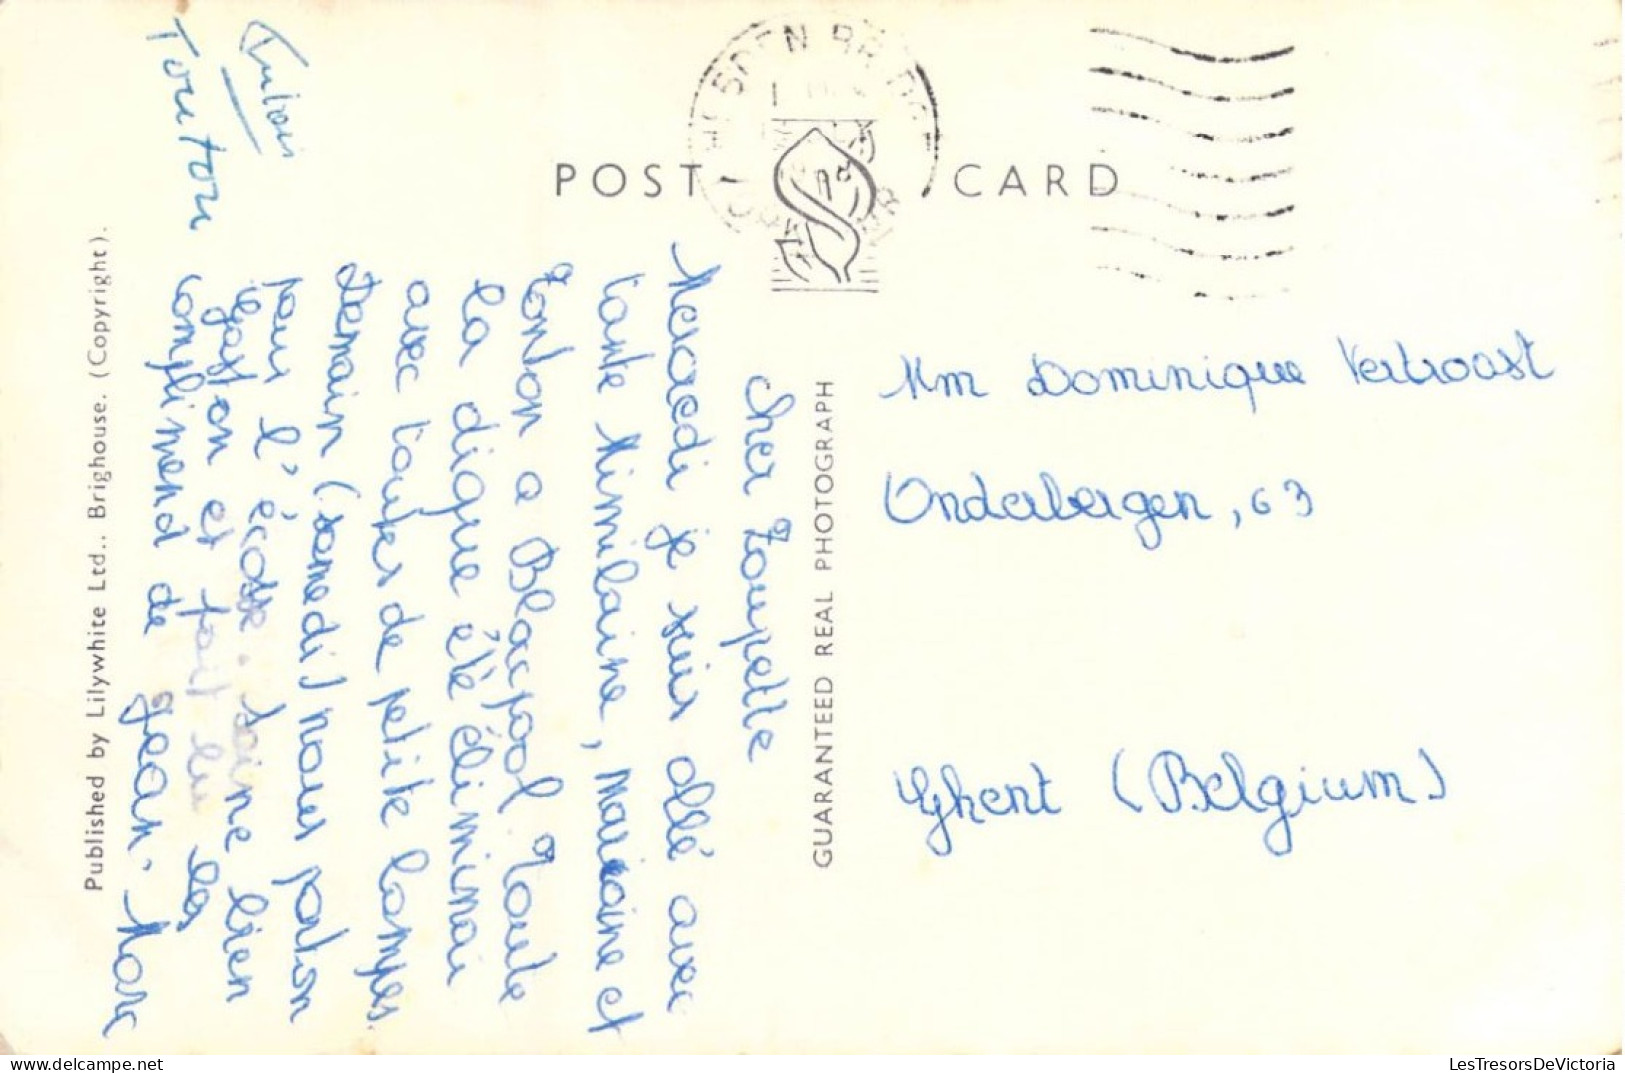 POST CARD
Cher Toupette
Mercredi je suis allé avec
tante Mimilaine, Mariaine et
Tonton a Blacpool. Toute
la dique été éliminai
avec toutes de petite lampes.
Demain (samedi) nous parton
pour l'écosse. Soine bien
gaston et fait lui les
compliment de Jean-Marc
Tonton
GUARANTEED REAL PHOTOGRAPH
Published by Lilywhite Ltd.. Brighouse. (Copyright).
Mm Dominique Vertroost
Onderbergen, 63
Ghent (Belgium)
LesTresorsDeVictoria